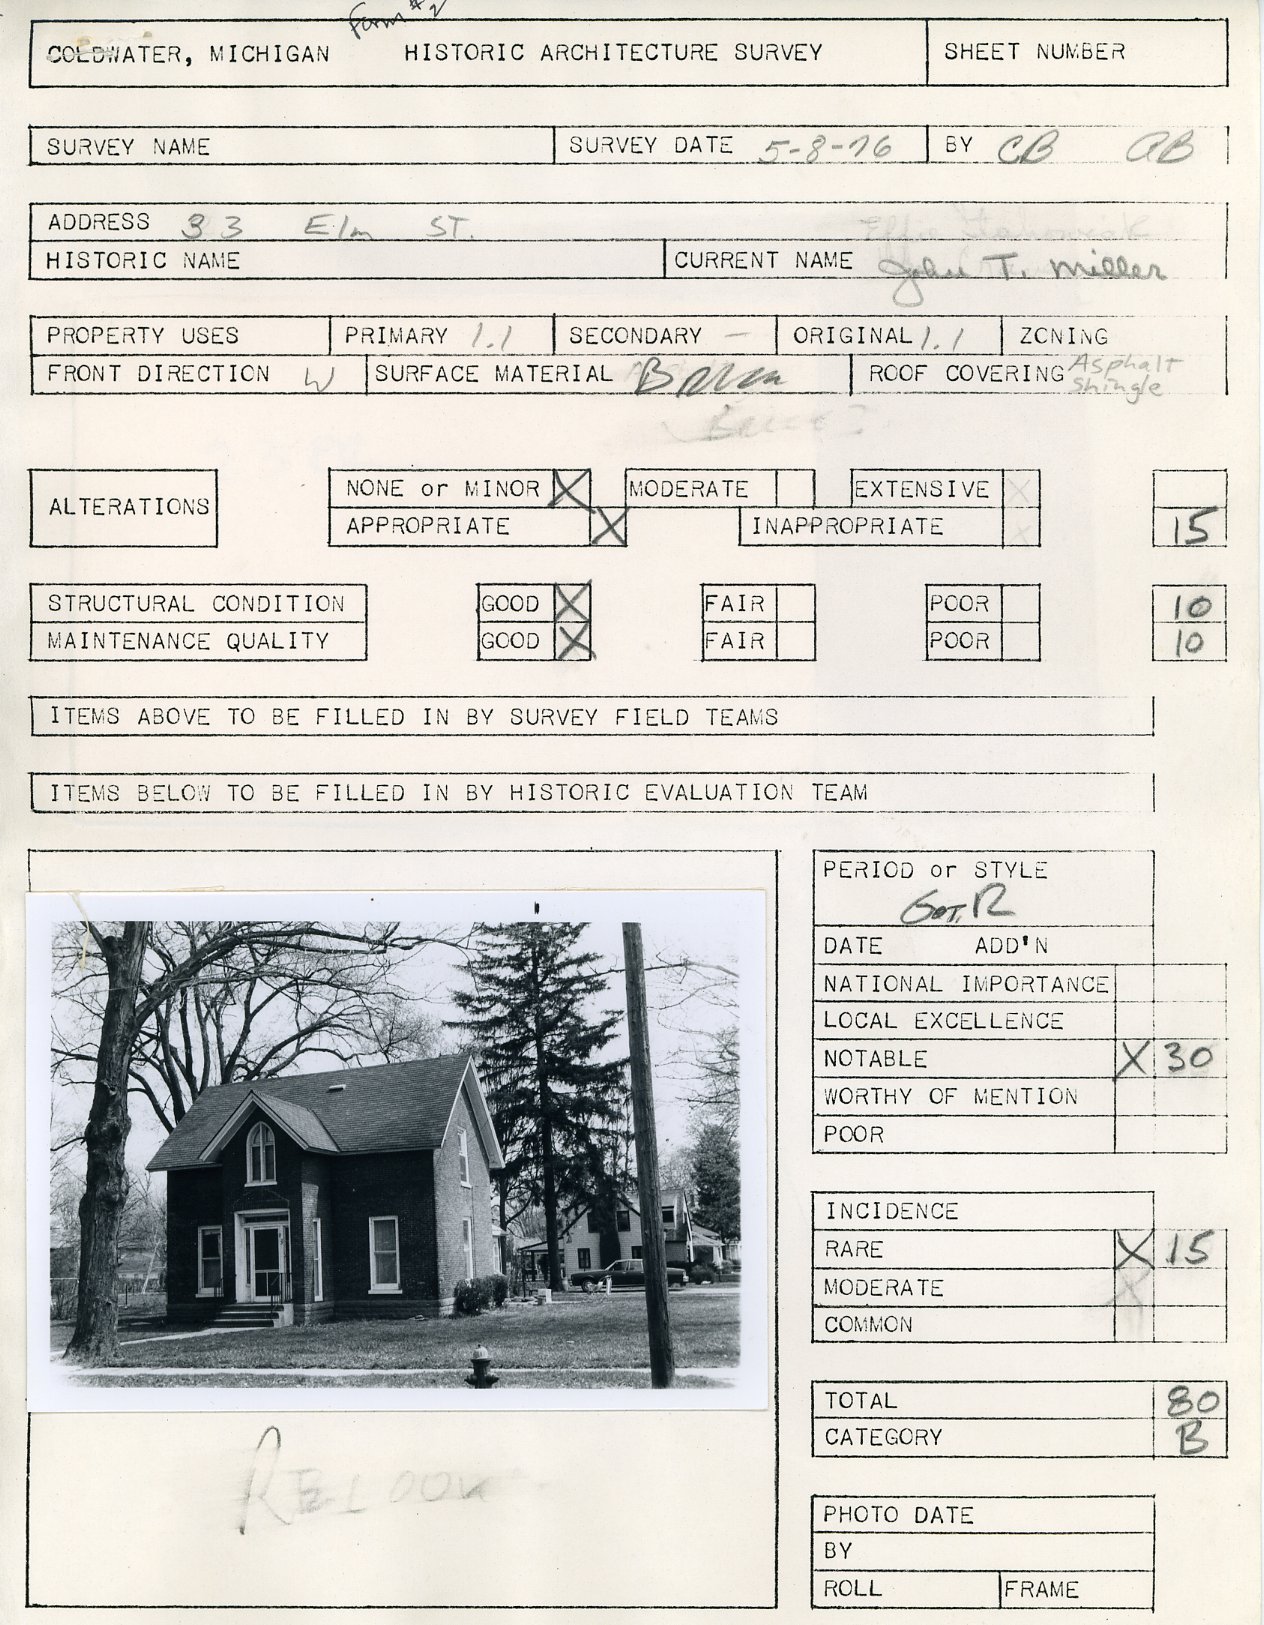 Form #2
COLDWATER, MICHIGAN HISTORIC ARCHITECTURE SURVEY SHEET NUMBER
SURVEY NAME SURVEY DATE 5-8-76 BY CB AB
ADDRESS 33 Elm ST.
HISTORIC NAME CURRENT NAME John T. Miller
PROPERTY USES PRIMARY 1.1 SECONDARY - ORIGINAL 1.1 ZONING
FRONT DIRECTION W SURFACE MATERIAL ROOF COVERING Asphalt Shingle
ALTERATIONS NONE or MINOR X MODERATE EXTENSIVE X
APPROPRIATE X INAPPROPRIATE X 15
STRUCTURAL CONDITION GOOD X FAIR POOR 10
MAINTENANCE QUALITY GOOD X FAIR POOR 10
ITEMS ABOVE TO BE FILLED IN BY SURVEY FIELD TEAMS
ITEMS BELOW TO BE FILLED IN BY HISTORIC EVALUATION TEAM
PERIOD or STYLE
GOT. R
DATE ADD'N
NATIONAL IMPORTANCE
LOCAL EXCELLENCE
NOTABLE X 30
WORTHY OF MENTION
POOR
INCIDENCE
RARE X 15
MODERATE X
COMMON
TOTAL 80
CATEGORY B
RELOOK
PHOTO DATE
BY
ROLL FRAME